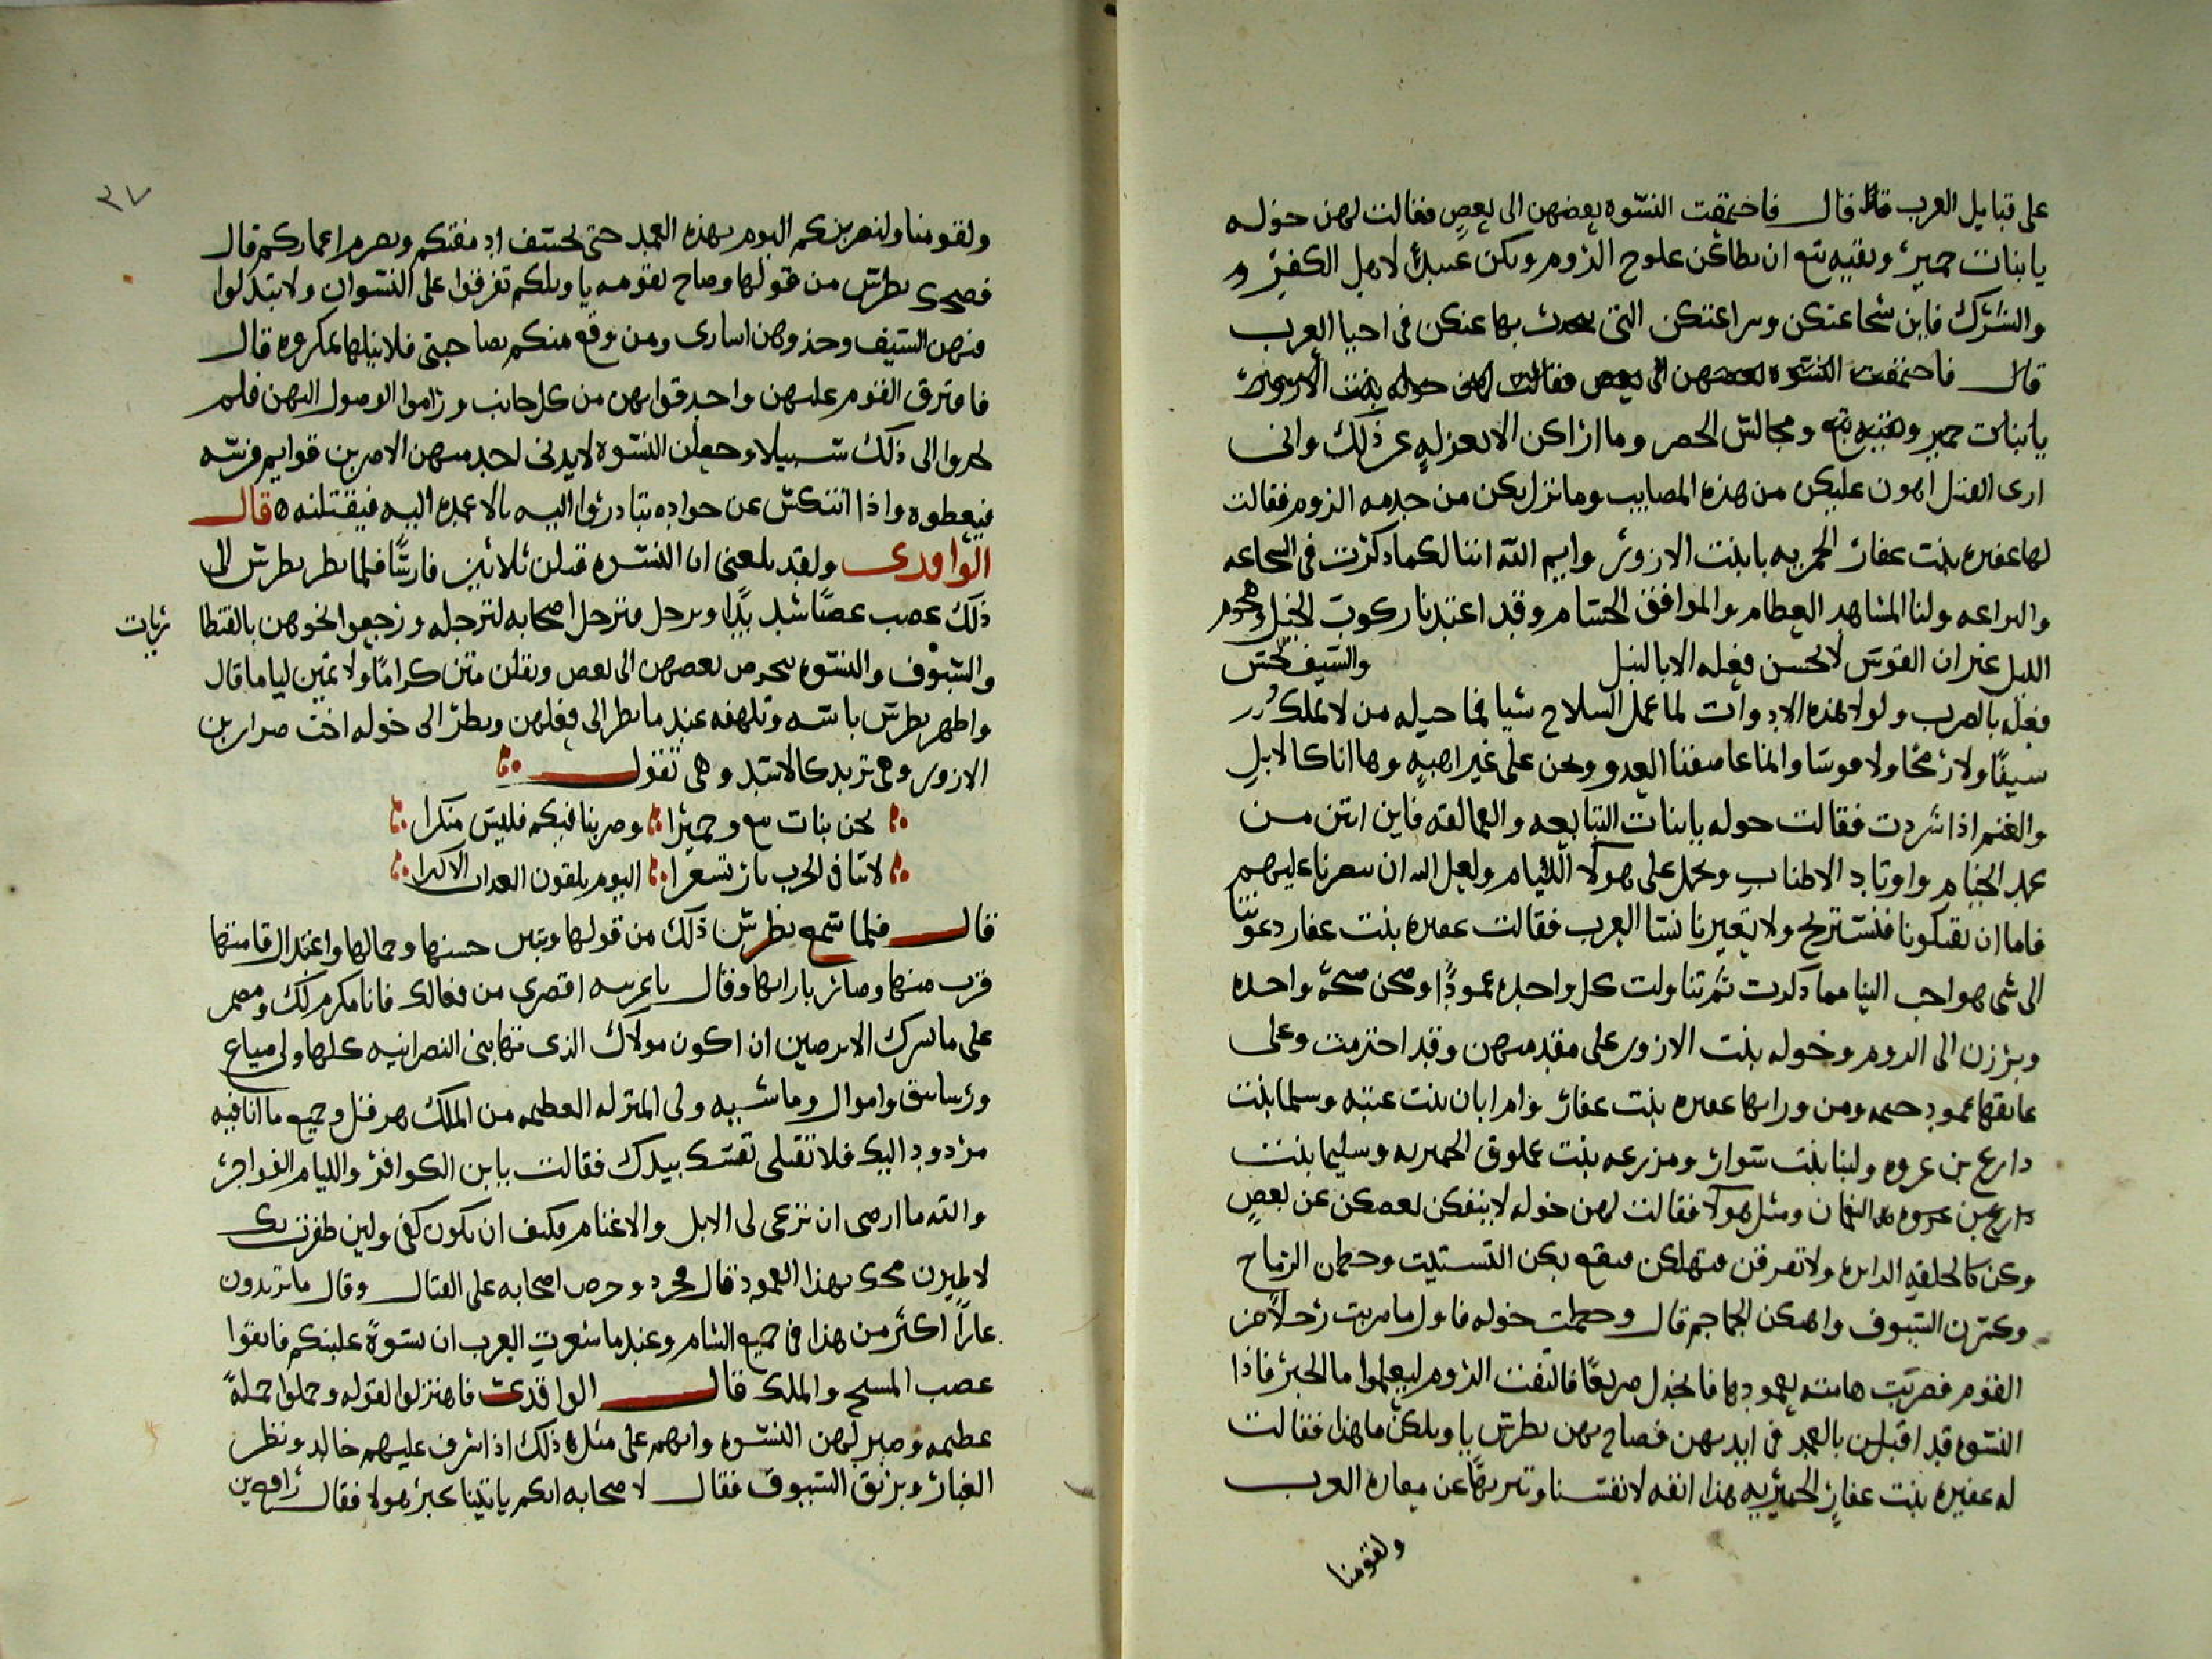 على قبايل العرب قال فاجتمعت النسوه بعضهن الى بعض فقالت لهن خوله
يا بنات حمير وبقيه تبع ان بطاغن علوج الروم وبكن عبيدا لاهل الكفر و
والشرك فاين شجاعتكن وبراعتكن التى بحدث بها عنكن فى احيا العرب
قال فاجتمعت النسوه بعضهن الى بعض فقالت لهن خوله بنت الازور
يا بنات حمير وبقيه تبع ومجالس الحصر وما اراكن الا بعزله عن ذلك وانى
ارى القتل اهون عليكن من هذه المصايب وما نزل بكن من خدمه الروم فقالت
لها عفيره بنت عفار الحمريه يا بنت الازور وايم الله اننا لكما ذكرت فى الشجاعه
والبراعه ولنا المشاهد العظام والمواقف الجسام وقد اعتدنا ركوب الخيل وهجوم
الليل غير ان القوس لا يحسن فعله الا بالنبل والسيف يحسن
فعله بالضرب ولولا هذه الادوات لما عمل السلاح شيا فما حيله من لا يملك
سيفا ولا رمحا ولا قوسا وانما عاصفنا العدو ونحن على غير اهبه وها انا كالابل
والغنم اذا شردت فقالت خوله يا بنات التبابعه والعمالقه فاين انتن من
عمد الخيام واوتاد الاطناب ونحمل على هولا اللئيام ولعل الله ان ينصرنا عليهم
فاما ان يقتلونا فنستريح ولا يعيرنا نسا العرب فقالت عفيره بنت عفار دعوتنا
الى شى هو احب الينا مما ذكرت ثم تناولت كل واحده عمودا وصحن صيحه واحده
وبرزن الى الروم وخوله بنت الازور على مقدمتهن وقد احتزمت وعلى
عاتقها عمود خيمه ومن ورايها عفيره بنت عفار وام ابان بنت عتبه وسلما بنت
دارع بن عروه ولبنا بنت سوار ومزرعه بنت عملوق الحميريه وسليما بنت
دارع بن عروه النعمان ومثل هولا فقالت لهن خوله لا ينفكن بعضكن عن بعض
وكن كالحلقه الدايره ولا تفرقن فتهلكن فيقع بكن التشتيت وحطمن الرماح
وكسرن السيوف واهكن الجماجم قال وحملت خوله فاول ما ضربت رجلا من
القوم فضربت هامته بعمودها فانجدل صريعا فالتفت الروم ليعلموا ما الخبر فاذا
النسوه قد اقبلن بالعمد فى ايديهن فصاح بهن بطرس يا ويلكن ما هذا فقالت
له عفيره بنت عفار الحميريه هذا انفه لانفسنا وتنزيها عن معاره العرب
ولقومنا
٣٧
ولقومنا ولنضربنكم اليوم بهذه العمد حتى نحسف ادمغتكم ونصرم اعماركم قال
فضحك بطرس من قولها وصاح لقومه يا ويلكم تفرقوا على النسوان ولا تبدلوا
فيهن السيف وخذوهن اسارى ومن وقع منكم بصاحبتى فلا ينيلها بمكروه قال
فافترق القوم عليهن واحدقوا بهن من كل جانب وراموا الوصول اليهن فلم
يجدوا الى ذلك سبيلا وجعلن النسوه لا يدنى احد منهن الا ضربن قوايم فرسه
فيعطوه واذا انتكس عن جواده تبادروا اليه بالاعمده اليه فيقتلنه ٥ قال
الواقدى ولقد بلغنى ان النسوه قتلن ثلاثين فارسا فلما نظر بطرس الى
ذلك غضب غضبا شديدا وترجل فترجل اصحابه لترجله ورجعوا نحوهن بالقنطا
ريات
والسيوف والنسوه يحرض بعضهن الى بعض ويقلن متن كراما ولا تمين لياما قال
واظهر بطرس باسه وتلهفه عند ما نظر الى فعلهن ونظر الى خوله اخت ضرار بن
الازور وهى تربد كالاسد وهى تقول
نحن بنات تبع وحميرا وضربنا فيكم فليس منكرا
لاننا فى الحرب نار تسعرا اليوم يلقون العذاب الاكبرا
قال فلما سمع بطرس ذلك من قولها وتبين حسنها وجمالها واعتدال قامتها
قرب منها وصار بازايها وقال يا عربيه اقصرى من فعالك فانا مكرم لك ومضمر
على ما يسرك الا ترضين ان اكون مولاك الذى تهابنى النصرانيه كلها ولى ضياع
ورساتيق واموال وماشيه ولى المنزله العظيمه من الملك هرقل وجميع ما انا فيه
مردود اليك فلا تقتلى نفسك بيدك فقالت يا بن الكوافر والليام الفواجر
والله ما ارضى ان ترعى لى الابل والاغنام فكيف ان تكون كفى ولين ظفرت بك
لاطيرن مخك بهذا العمود قال فحرد وحرض اصحابه على القتال وقال ما تريدون
عارا اكثر من هذا فى جميع الشام وعند ما شعرت العرب ان نسوة غلبنكم فاتقوا
غضب المسيح والملك قال الواقدى فاهتزلوا لقوله وحملوا حملة
عظيمه وصبر لهن النسوه وانهم على مثل ذلك اذ اشرف عليهم خالد ونظر
الغبار وبريق السيوف فقال لاصحابه ايكم ياتينا بخبر هولا فقال رافع بن